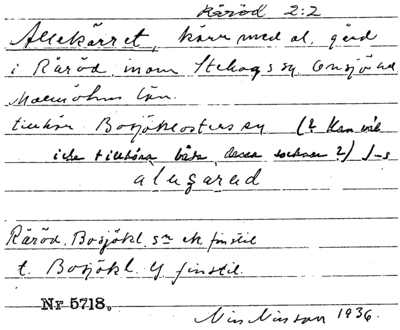 Röröd 2:2
Allekärret, kärr med al, gård
i Röröd, inom Stehags sn, Onsjö hd
Malmöhus län.
tillhör Bosjöklosters sn (? Kan väl
icke tillhöra båda dessa socknar?) J-s
alegarad
Röröd. Bosjökl. sn ek finstil
t. Bosjökl. finstil.
Nr 5718.
Nils Nilsson 1936.